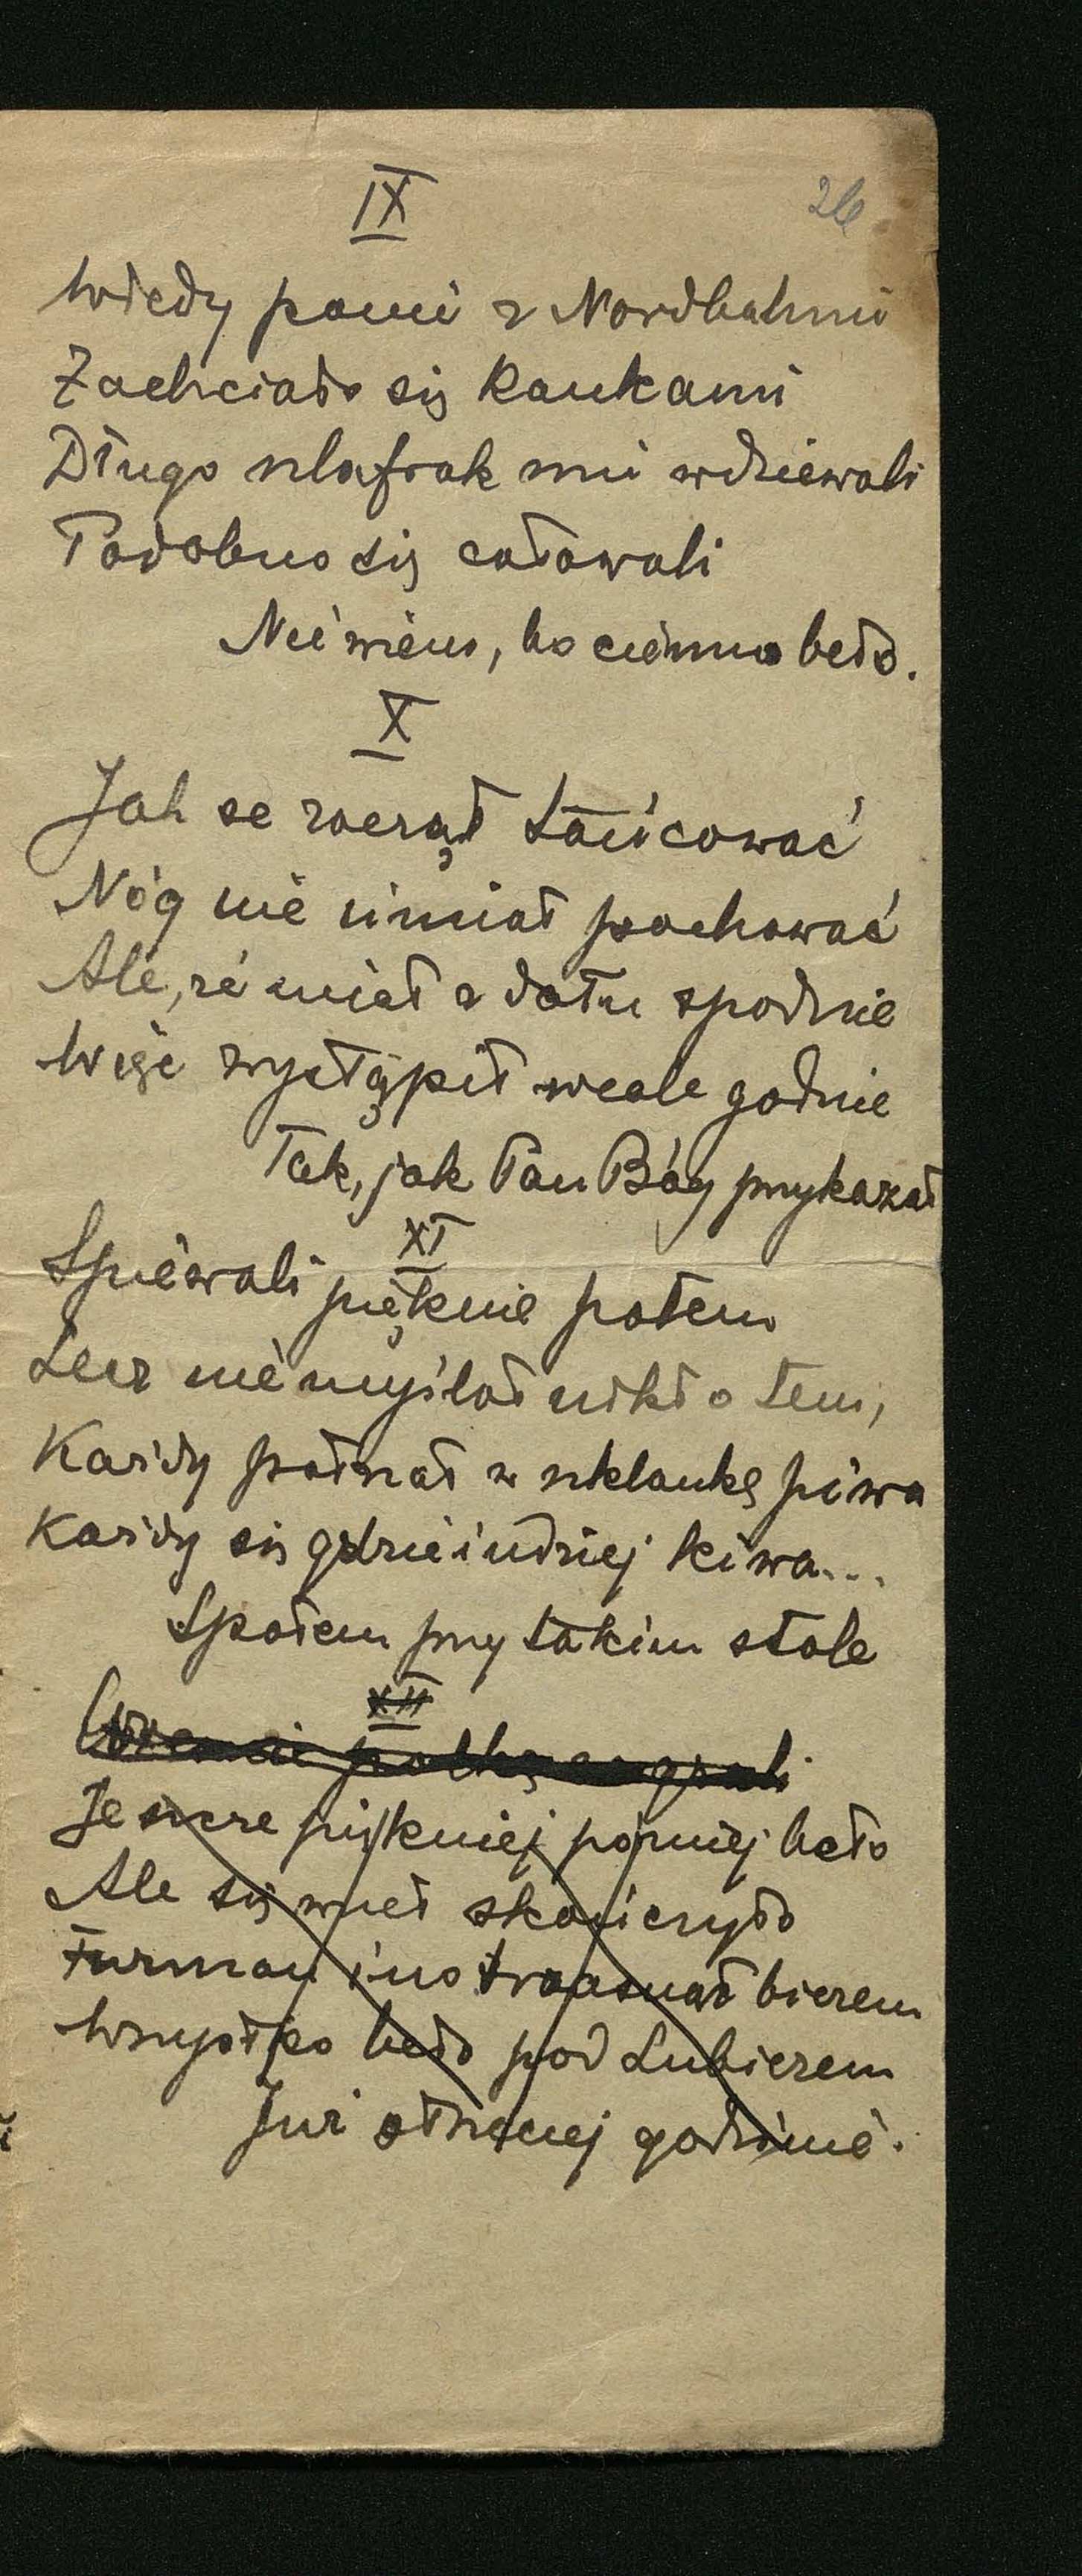 IX
26
Wtedy panie z Nordbahnu
Zachciało się kankanu
Długo szlafrok mu wdziewali
Podobno się całowali
Nie wiem, bo ciemno beło.
X
Jak se zaczął tańcować
Nóg nie umiał pochować
Ale, że miał z dołu spodnie
Więc wystąpił wcale godnie
Tak, jak Pan Bóg przykazał
XI
Śpiewali pięknie potem
Lecz nie myślał nikt o tem,
Każdy patrzał w szklankę piwa
Każdy się gdzieindziej kiwa...
Społem przy takim stole
XII
polkę zagrali
Jeszcze piękniej później beło
Ale się wnet skończyło
Furman ino trzasnął biczem
Wszystko beło pod Lubiczem
Już o trzeciej godzinie.